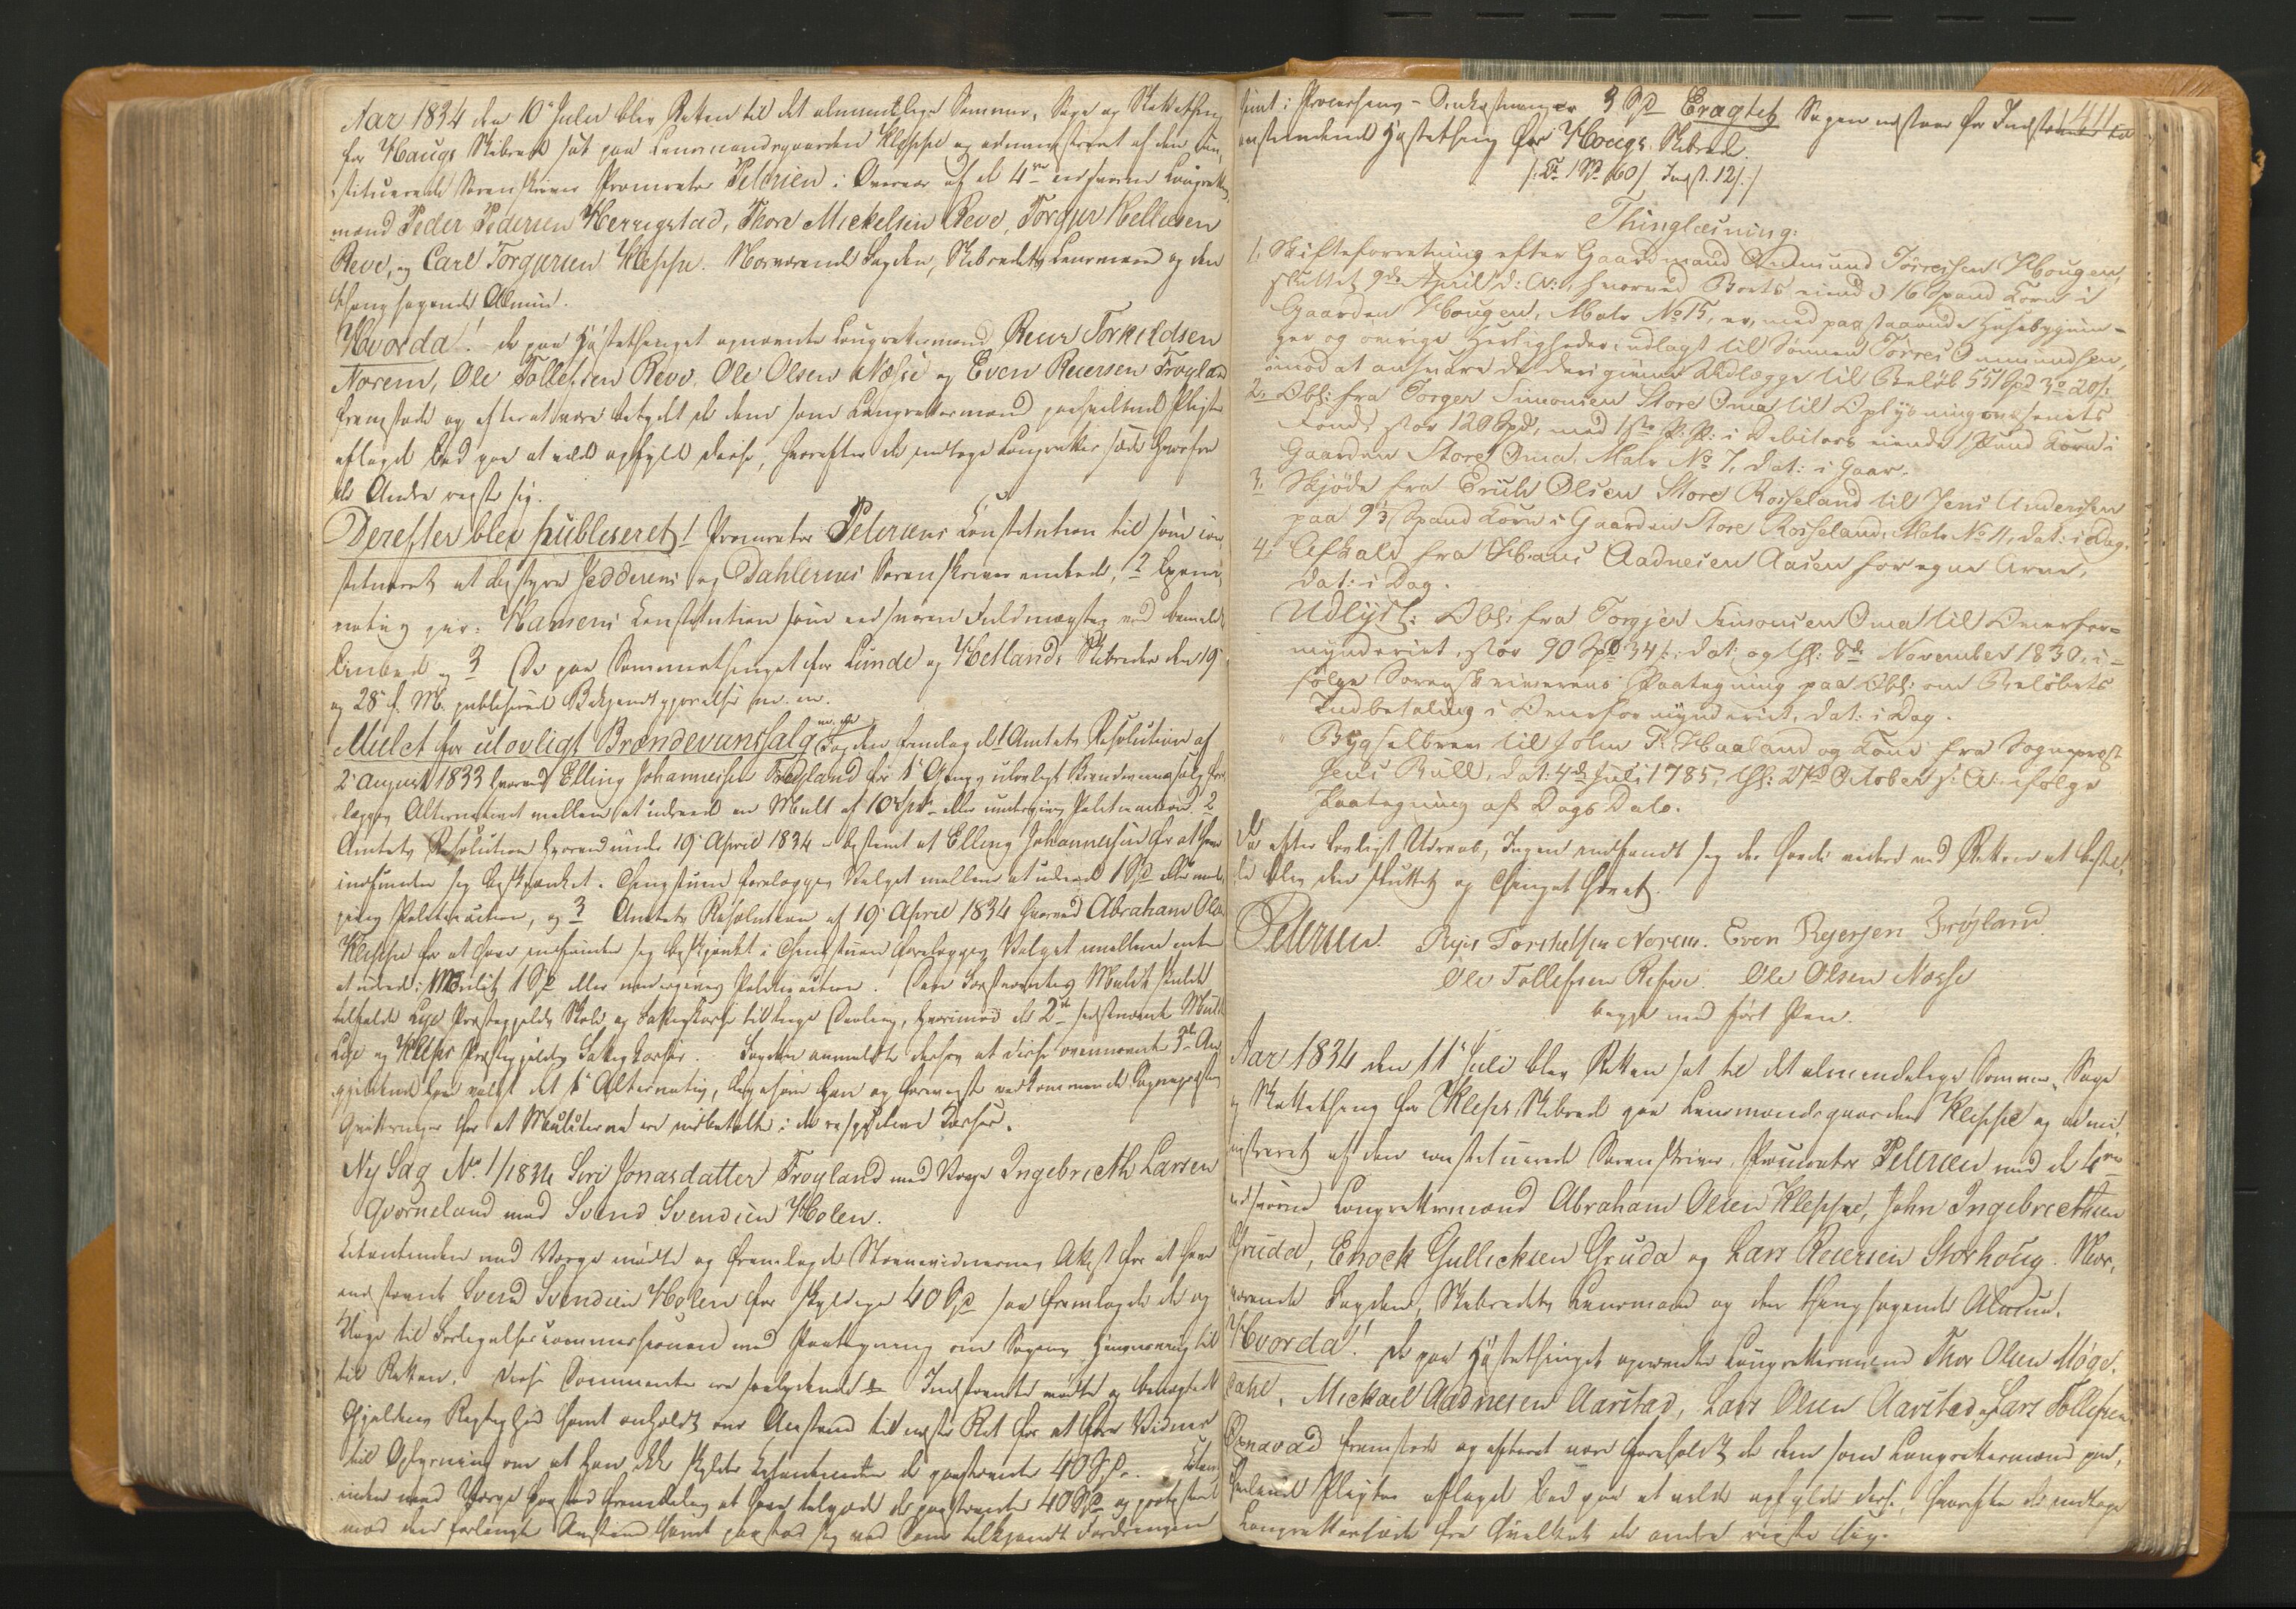 Aar 1834 den 10de Julii blev Retten til det almindelige Sommer, Sage og Skattething
for Haugs Skibrede sat paa Lensmandsgaarden Kleppe og administreret af den con,
stituerede Sorenskriver Procurator Petersen i Overvær af de 4re eedsvorne Laugrettes,
mænd Peder Pedersen Herrigstad, Thore Mickelsen Reve, Torger Hellesen
Reve, og Carl Torgersen Kleppe. Nærværende Fogden, Skibredets Lensmand og den
thingsøgende Almue.
Hvorda! de paa Høstethinget opnævnte Laugrettesmænd Reier Torkildsen
Norem, Ole Tollefsen Reve, Ole Olsen Næsse og Even Reiersen Frøyland
fremstode og efterat være betydet de dem som Laugrettesmænd paahvilende Pligter
aflagde Eed paa at ville opfylde disse, hvorefter de indtoge Laugrettes sæde hvorfra
de Andre reiste sig.
Derefter blev publiceret 1 Procurator Petersens Constitution til som con
stitueret at bestyre Jedderens og Dahlernes Sorenskriver embede, 2 Exami
natus jur: Hansens Constitution som eedsvoren Fuldmægtig ved bemeldte
Embed og 3 De paa Sommerthinget for Lunde og Hetlands Skibreder den 19
og 28 f. M. publicerede Bekjendtgjørelser m. m.
Mulct for ulovligt Brændeviinssalg m. m. Fogden fremlagde 1 Amtets Resolution af
2 August 1833 hvorved Elling Johannesen Frøyland for 1ste Gang ulovligt Brændeviinssalg fore
lægges Alternativet mellem at udrede en Mulkt af 10 Spd eller undergives Politieaction. 2
Amtets Resolution hvorved under 19 April 1834 er bestemt at Elling Johannesen for at have
indfunden sig beskjænket i Thingstuen forelægges Valget mellem at udrede 1 Spd eller under
gives Politieaction, og 3 Amtets Resolution af 19 April 1834 hvorved Abraham Olsen
Kleppe for at have indfunden sig beskjænket i Thingstuen forelægges Valget mellem enten
at udrede i Mulct 1 Spd eller undergives Politieaction. Den førstnævnte Mulct skulde
tilfalde Lye Præstegjelds Skole og Fattigkasse til lige Deeling, hvorimod de 2de sidstnævnte Mulkter
Lye og Kleps Præstegjelds Fattigkasser. Fogden anmeldte derhos at disse ovennævnte 3de An
gjeldende have valgt det 1ste Alternativ, ligesom han og foreviste vedkommende Sognepræsters
Qvitteringer for at Mulcterne ere indbetalte i de respective Kasser.
Ny Sag No. 1/1834 Siri Jonasdatter Frøyland med Verge Ingebricth Larsen
Qværneland mod Svend Svendsen Holen.
Citantinden med Verge mødte og fremlagde Stevnevidnernes Attest for at have
indstævnt Svend Svendsen Holen for skyldige 40 Spd saa fremlagde de og
Klage til Forligelsescommissionen med Paategning om Sagens Henviisning til
til Retten. Disse Documenter ere saalydende Indstævnte mødte og benægtede
Gjeldens Rigtighed samt anholdt om Anstand til næste Ret for at føre Vidner
til Oplysning om at han ikke skylder Citantinden de paastævnte 40 Spd. Citan
tinden med Verge paastod fremdeles at have tilgode de paastævnte 40 Spd og protesterede
mod den forlangte Anstand samt paastod sig ved Dom tilkjendt Fordringen
samt i Procesens-Omkostninger 3 Spd Eragtet Sagen udstaar for Indstævnte til
411.
anstundende Høstething for Hougs Skibrede.
Thinglæsning:
1, Skifteforretning efter Gaardmand Ommund Tørresen Hougen,
sluttet 9de April d: A:, hvorved Boets eiende 16 Spand Korn i
Gaarden Hougen, Matr No 15, er, med paastaaende Husebygnin-
ger og øvrige Herligheder, udlagt til Sønnen Tørres Ommundsen,
imod at ansvare de dergivne Udlægge til Beløb 551 Spd 3o 20s:
2, Obl: fra Torger Simonsen Store Oma til Oplysningsvæsenets
Fond, stor 120 Spd, med 1ste P: P: i Debitors eiende 1 Pund Korn i
Gaarden Store Oma, Matr No 7, dat: i Gaar.
3, Skjøde fra Eruls Olsen Store Rosseland til Jens Andersen
paa 9⅓ Spand Korn i Gaarden Store Rosseland, Matr No 11, dat: i Dag.
4, Afkald fra Hans Aadnesen Aasen for egen Arv,
dat: i Dag.
Udlyst: Obl: fra Torgjer Simonsen Oma til Overfor-
mynderiet, stor 90 Spd 34s: dat: og thl: 8de November 1830, i-
følge Sorenskriverens Paategning paa Obl: om Beløbets
Indbetaling i Overformynderiet, dat: i Dag.
Bygselbrev til John P. Haaland og Kone fra Sognepræst
Jens Bull, dat: 4de Juli 1785, thl: 27de October s: A: ifølge
Paategning af Dags Dato.
Da efter lovligt Udraab, Ingen indfandt sig der havde videre ved Retten at bestil,
le blev den sluttet og Thinget hævet.
Petersen. Rejer Torkelsen Norem. Even Rejersen Frøyland
Ole Tollefsen Refve. Ole Olsen Næsse
begge med ført Pen.
Aar 1834 den 11te Juli blev Retten sat til det almindelige Sommer, Sage
og Skattething for Kleps Skibrede paa Lensmandsgaarden Kleppe og admi,
nistreret af den constituerede Sorenskriver, Procurator Petersen med de 4re
eedsvorne Laugrettesmænd Abraham Olsen Kleppe, John Ingebricthsen
Gruda, Enock Gullicksen Gruda og Lars Reiersen Storhoug. Nær,
værende Fogden, Skibredets Lensmand og den thingsøgende Almue.
Hvorda! de paa Høstethinget opnævnte Laugrettesmænd Thor Olsen Høge,
dahl, Mickael Aadnesen Aarstad, Lars Olsen Aarstad og Lars Tollefsen
Ørnavad fremstode og efterat være foreholdt de dem som Laugrettesmænd paa,
hvilende Pligter aflagde Eed paa at ville opfylde disse, hvorefter de indtoge
Laugrettessæde fra hvilket de andre reiste sig.